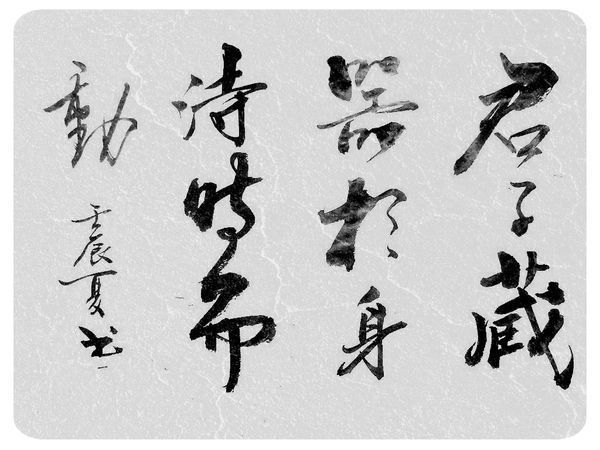 君子藏
器於身
待時而
動
壬辰夏书